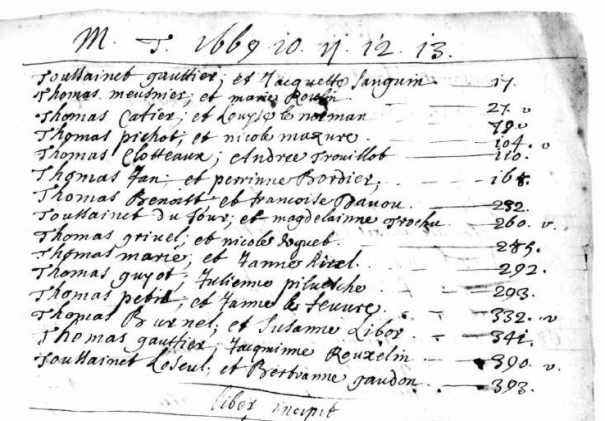 M. T. 1669 10. 11. 12. 13.
Toussainct gauttier; et Jacquette Sanguin — 17.
Thomas meusnier; et marie Roulin
Thomas Catier; et Louyse le norman — 27. v
Thomas pichot; et nicole mazure. — 79 v
Thomas Clotteaux; Andree Trouillot — 104. v
— 110.
Thomas Jan; et perrinne Bordier, — 168.
Thomas Benoist et francoise Davou. — 232.
Toussainct du four; et magdelainne Trochu — 260. v.
Thomas grivel; et nicole — 285.
Thomas marie; et Janne — 292.
Thomas guyot; Julienne — 293.
Thomas petit; et Janne le feuvre. — 332. v
Thomas Burnel; et Susanne Libor. — 341.
Thomas gauttier, Jacqminne Rouxelin — 390. v.
Toussainct Loseul; et Bertranne gaudon. — 393.
liber incipit